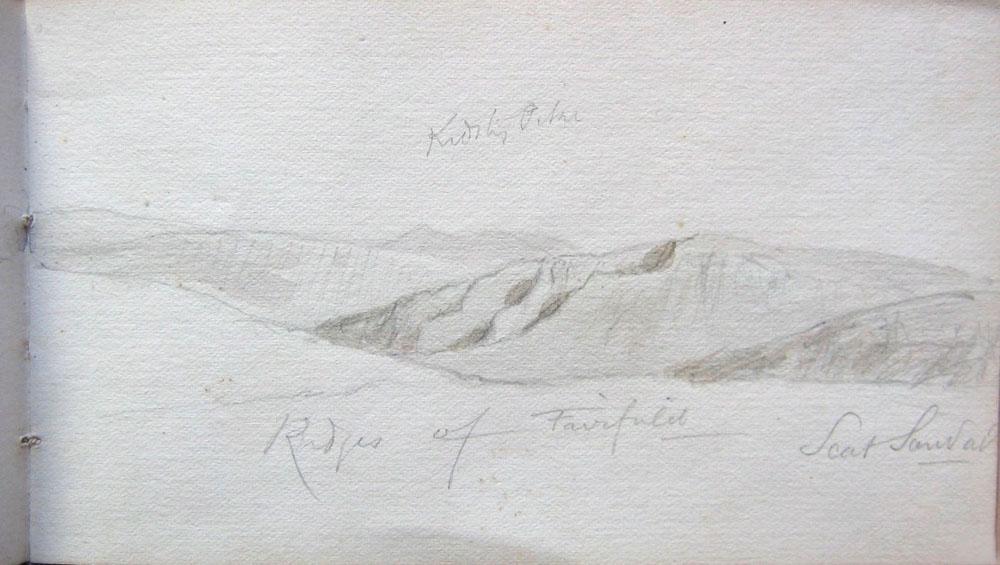 Kidsty Pike
Ridges of Fairfield
Seat Sandal